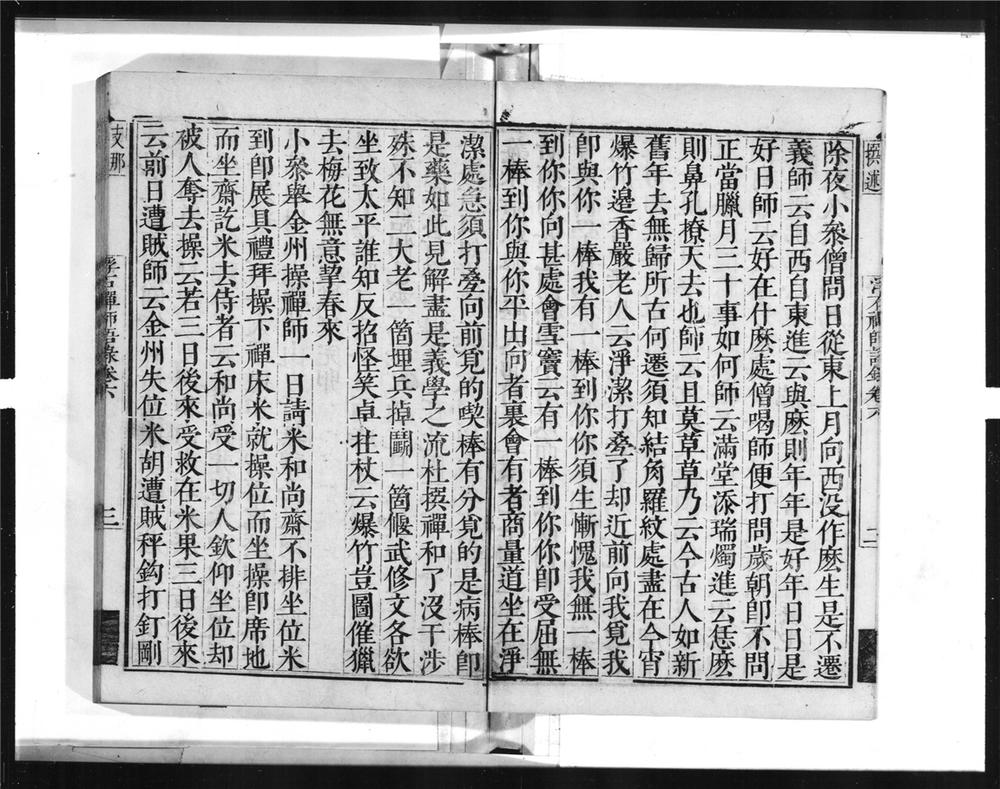 除夜小叅僧問日從東上月向西没作麽生是不遷
義師云自西自東進云與麽則年年是好年日日是
好日師云好在什麽處僧喝師便打問歲朝卽不問
正當臘月三十事如何師云滿堂添瑞燭進云恁麽
則鼻孔撩天去也師云且莫草草乃云今古人如新
舊年去無歸所古何遷須知結角羅紋處盡在今宵
爆竹邊香嚴老人云淨潔打疊了却近前向我覓我
卽與你一棒我有一棒到你你須生慚愧我無一棒
到你你向甚處會雪竇云有一棒到你你卽受屈無
一棒到你與你平出向者裏會有者商量道坐在淨
潔處急須打疊向前覓的喫棒有分覓的是病棒卽
是藥如此見解盡是義學之流杜撰禪和了沒干涉
殊不知二大老一箇埋兵掉鬭一箇偃武修文各欲
坐致太平誰知反招怪笑卓拄杖云爆竹豈圖催獵
去梅花無意挈春來
小叅舉金州操禪師一日請米和尚齋不排坐位米
到卽展具禮拜操下禪床米就操位而坐操卽席地
而坐齋訖米去侍者云和尚受一切人欽仰坐位却
被人奪去操云若三日後來受救在米果三日後來
云前日遭賊師云金州失位米胡遭賊秤鈎打釘剛
支那
禪師語錄卷六
三